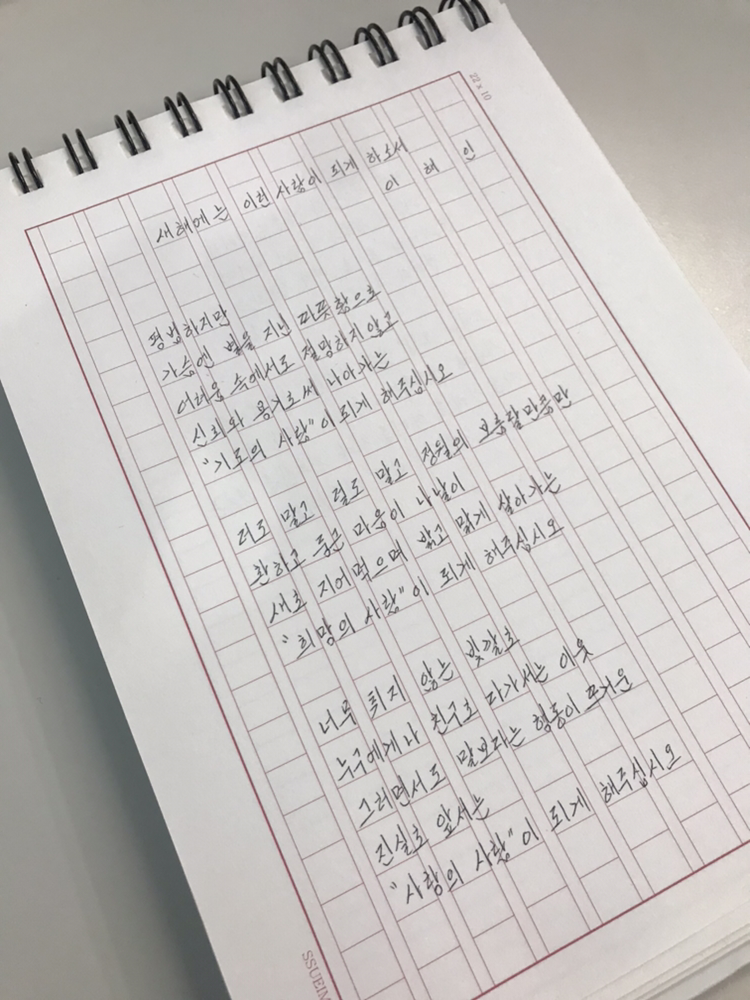 22 x 10
새해에는 이런 사람이 되게 하소서
이 해 인
평범하지만
가슴엔 별을 지닌 따뜻함으로
어려움 속에서도 절망하지 않고
신뢰와 용기로써 나아가는
"기도의 사람"이 되게 해주십시오
더도 말고 덜도 말고 정월의 보름달만큼만
환하고 둥근 마음이 나날이
새로 지어먹으며 밝고 맑게 살아가는
"희망의 사람"이 되게 해주십시오
너무 튀지 않는 빛깔로
누구에게나 친구로 다가서는 이웃
그러면서도 말보다는 행동이 뜨거운
진실로 앞서는
"사랑의 사람"이 되게 해주십시오